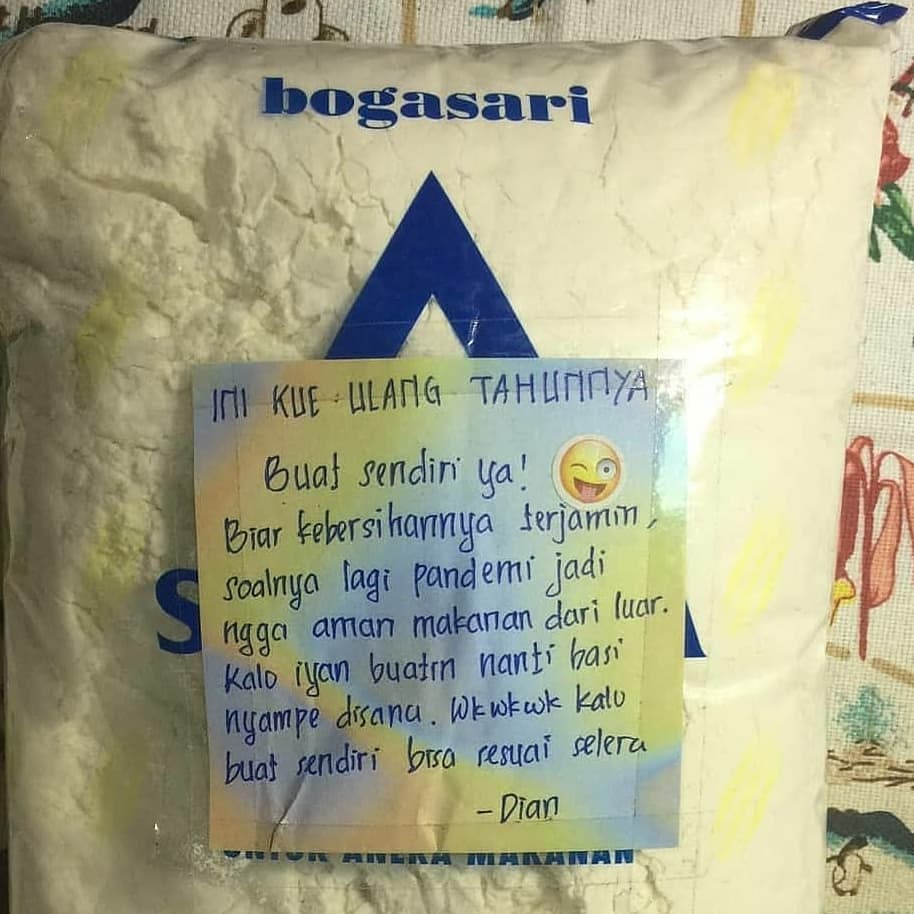 bogasari
INI KUE ULANG TAHUNNYA
Buat sendiri ya!
Biar kebersihannya terjamin,
soalnya lagi pandemi jadi
ngga aman makanan dari luar.
Kalo iyan buatin nanti basi
nyampe disana. Wkwkwk kalo
buat sendiri bisa sesuai selera
-Dian
UNTUK ANEKA MAKANAN